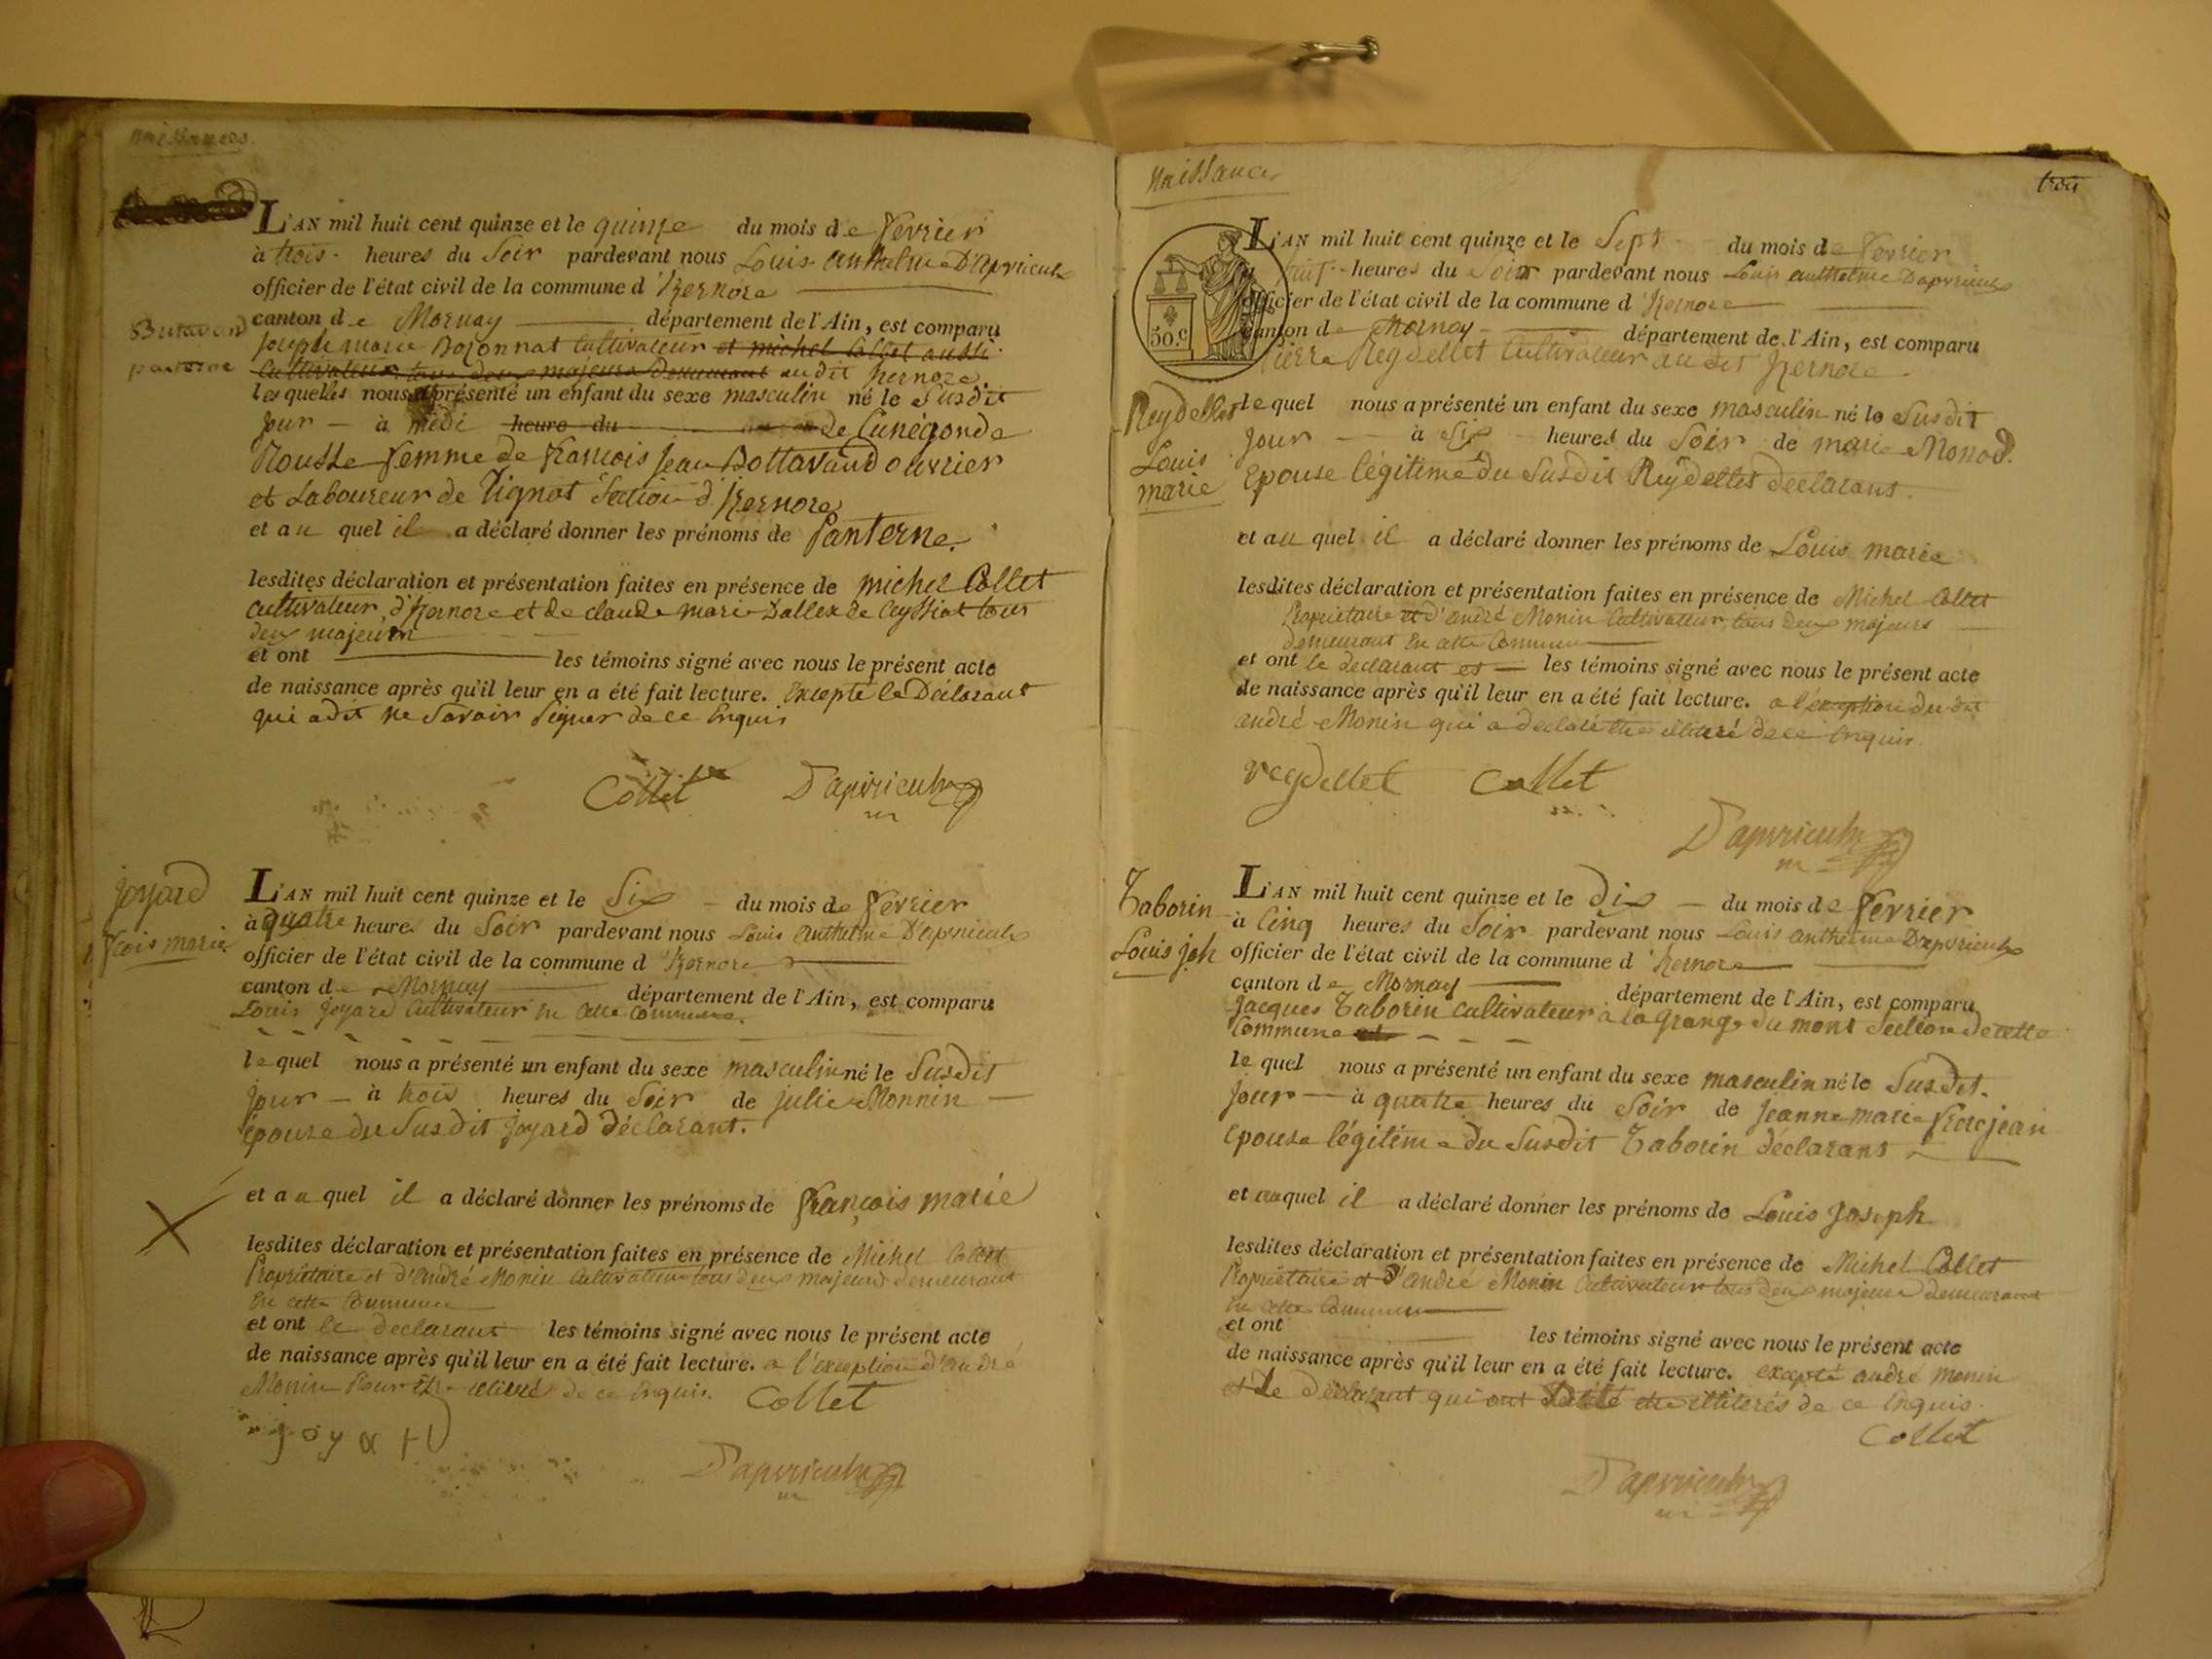 Naissances.
L'AN mil huit cent quinze et le quinze du mois de fevrier
à trois heures du Soir pardevant nous Louis anthelme D'apvrieulx
officier de l'état civil de la commune d'Izernore
canton de Mornay département de l'Ain, est comparu
joseph marie Bozonnat Cultivateur et michel Collet aussi
Cultivateur tous deux majeurs demeurant audit Izernore.
les quelles nous a présenté un enfant du sexe masculin né le Susdit
jour à midi heure du de Cunégonde
Rousse femme de françois jean Bottavand ouvrier
et Laboureur de Tignat Section d'Izernore
et au quel il a déclaré donner les prénoms de Panterne.
lesdites déclaration et présentation faites en présence de michel Collet
cultivateur, d'Izernore et de claude marie Dallex de Ceyssiat tous
deux majeurs
et ont les témoins signé avec nous le présent acte
de naissance après qu'il leur en a été fait lecture. Excepté le Déclarant
qui a dit ne Savoir Signer de ce Enquis
Collet D'apvrieulx
joyard
fcois marie
L'AN mil huit cent quinze et le Six du mois de fevrier
à quatre heures du Soir pardevant nous Louis anthelme D'apvrieulx
officier de l'état civil de la commune d'Izernore
canton de Mornay département de l'Ain, est comparu
Louis joyard Cultivateur en cette Commune.
le quel nous a présenté un enfant du sexe masculin né le Susdit
jour à trois heures du Soir de julie Monnin
épouse du Susdit joyard déclarant.
et au quel il a déclaré donner les prénoms de françois marie
lesdites déclaration et présentation faites en présence de Michel Collet
Propriétaire et d'andré Monin Cultivateur tous deux majeurs demeurant
En cette Commune
et ont le declarant les témoins signé avec nous le présent acte
de naissance après qu'il leur en a été fait lecture. a l'exception d'andré
Monin Pour être illitéré de ce Enquis. Collet
joyard
D'apvrieulx
Naissances
trois
50.C
L'AN mil huit cent quinze et le Sept du mois de fevrier
huit heures du Soir pardevant nous Louis anthelme Dapvrieulx
officier de l'état civil de la commune d'Izernore
canton de Mornay département de l'Ain, est comparu
Pierre Reydellet Cultivateur au dit Izernore
Reydellet
Louis
marie
le quel nous a présenté un enfant du sexe masculin né le Susdit
jour à Six heures du Soir de marie Monod.
Epouse légitime du Susdit Reydellet declarant.
et au quel il a déclaré donner les prénoms de Louis marie
lesdites déclaration et présentation faites en présence de Michel Collet
Propriétaire et d'andré Monin Cultivateur, tous deux majeurs
demeurant En cette Commune
et ont le declarant et les témoins signé avec nous le présent acte
de naissance après qu'il leur en a été fait lecture. a l'exception du dit
andré Monin qui a declaré être illitéré de ce Enquis.
reydellet Collet
D'apvrieulx
Taborin
Louis jph
L'AN mil huit cent quinze et le Dix du mois de fevrier
à Cinq heures du Soir pardevant nous Louis anthelme D'apvrieulx
officier de l'état civil de la commune d'Izernore
canton de Mornay département de l'Ain, est comparu
jacques Taborin cultivateur à la Grange du mont Section de cette
Commune
le quel nous a présenté un enfant du sexe masculin né le Susdit.
jour à quatre heures du Soir de jeanne marie frerejean
épouse légitime du Susdit Taborin déclarant
et auquel il a déclaré donner les prénoms de Louis joseph
lesdites déclaration et présentation faites en présence de Michel Collet
Propriétaire et d'andré Monin Cultivateur tous deux majeurs demeurant
En cette Commune
et ont les témoins signé avec nous le présent acte
de naissance après qu'il leur en a été fait lecture. excepté andré monin
et le déclarant qui ont declaré etre illiterés de ce Enquis.
Collet
D'apvrieulx